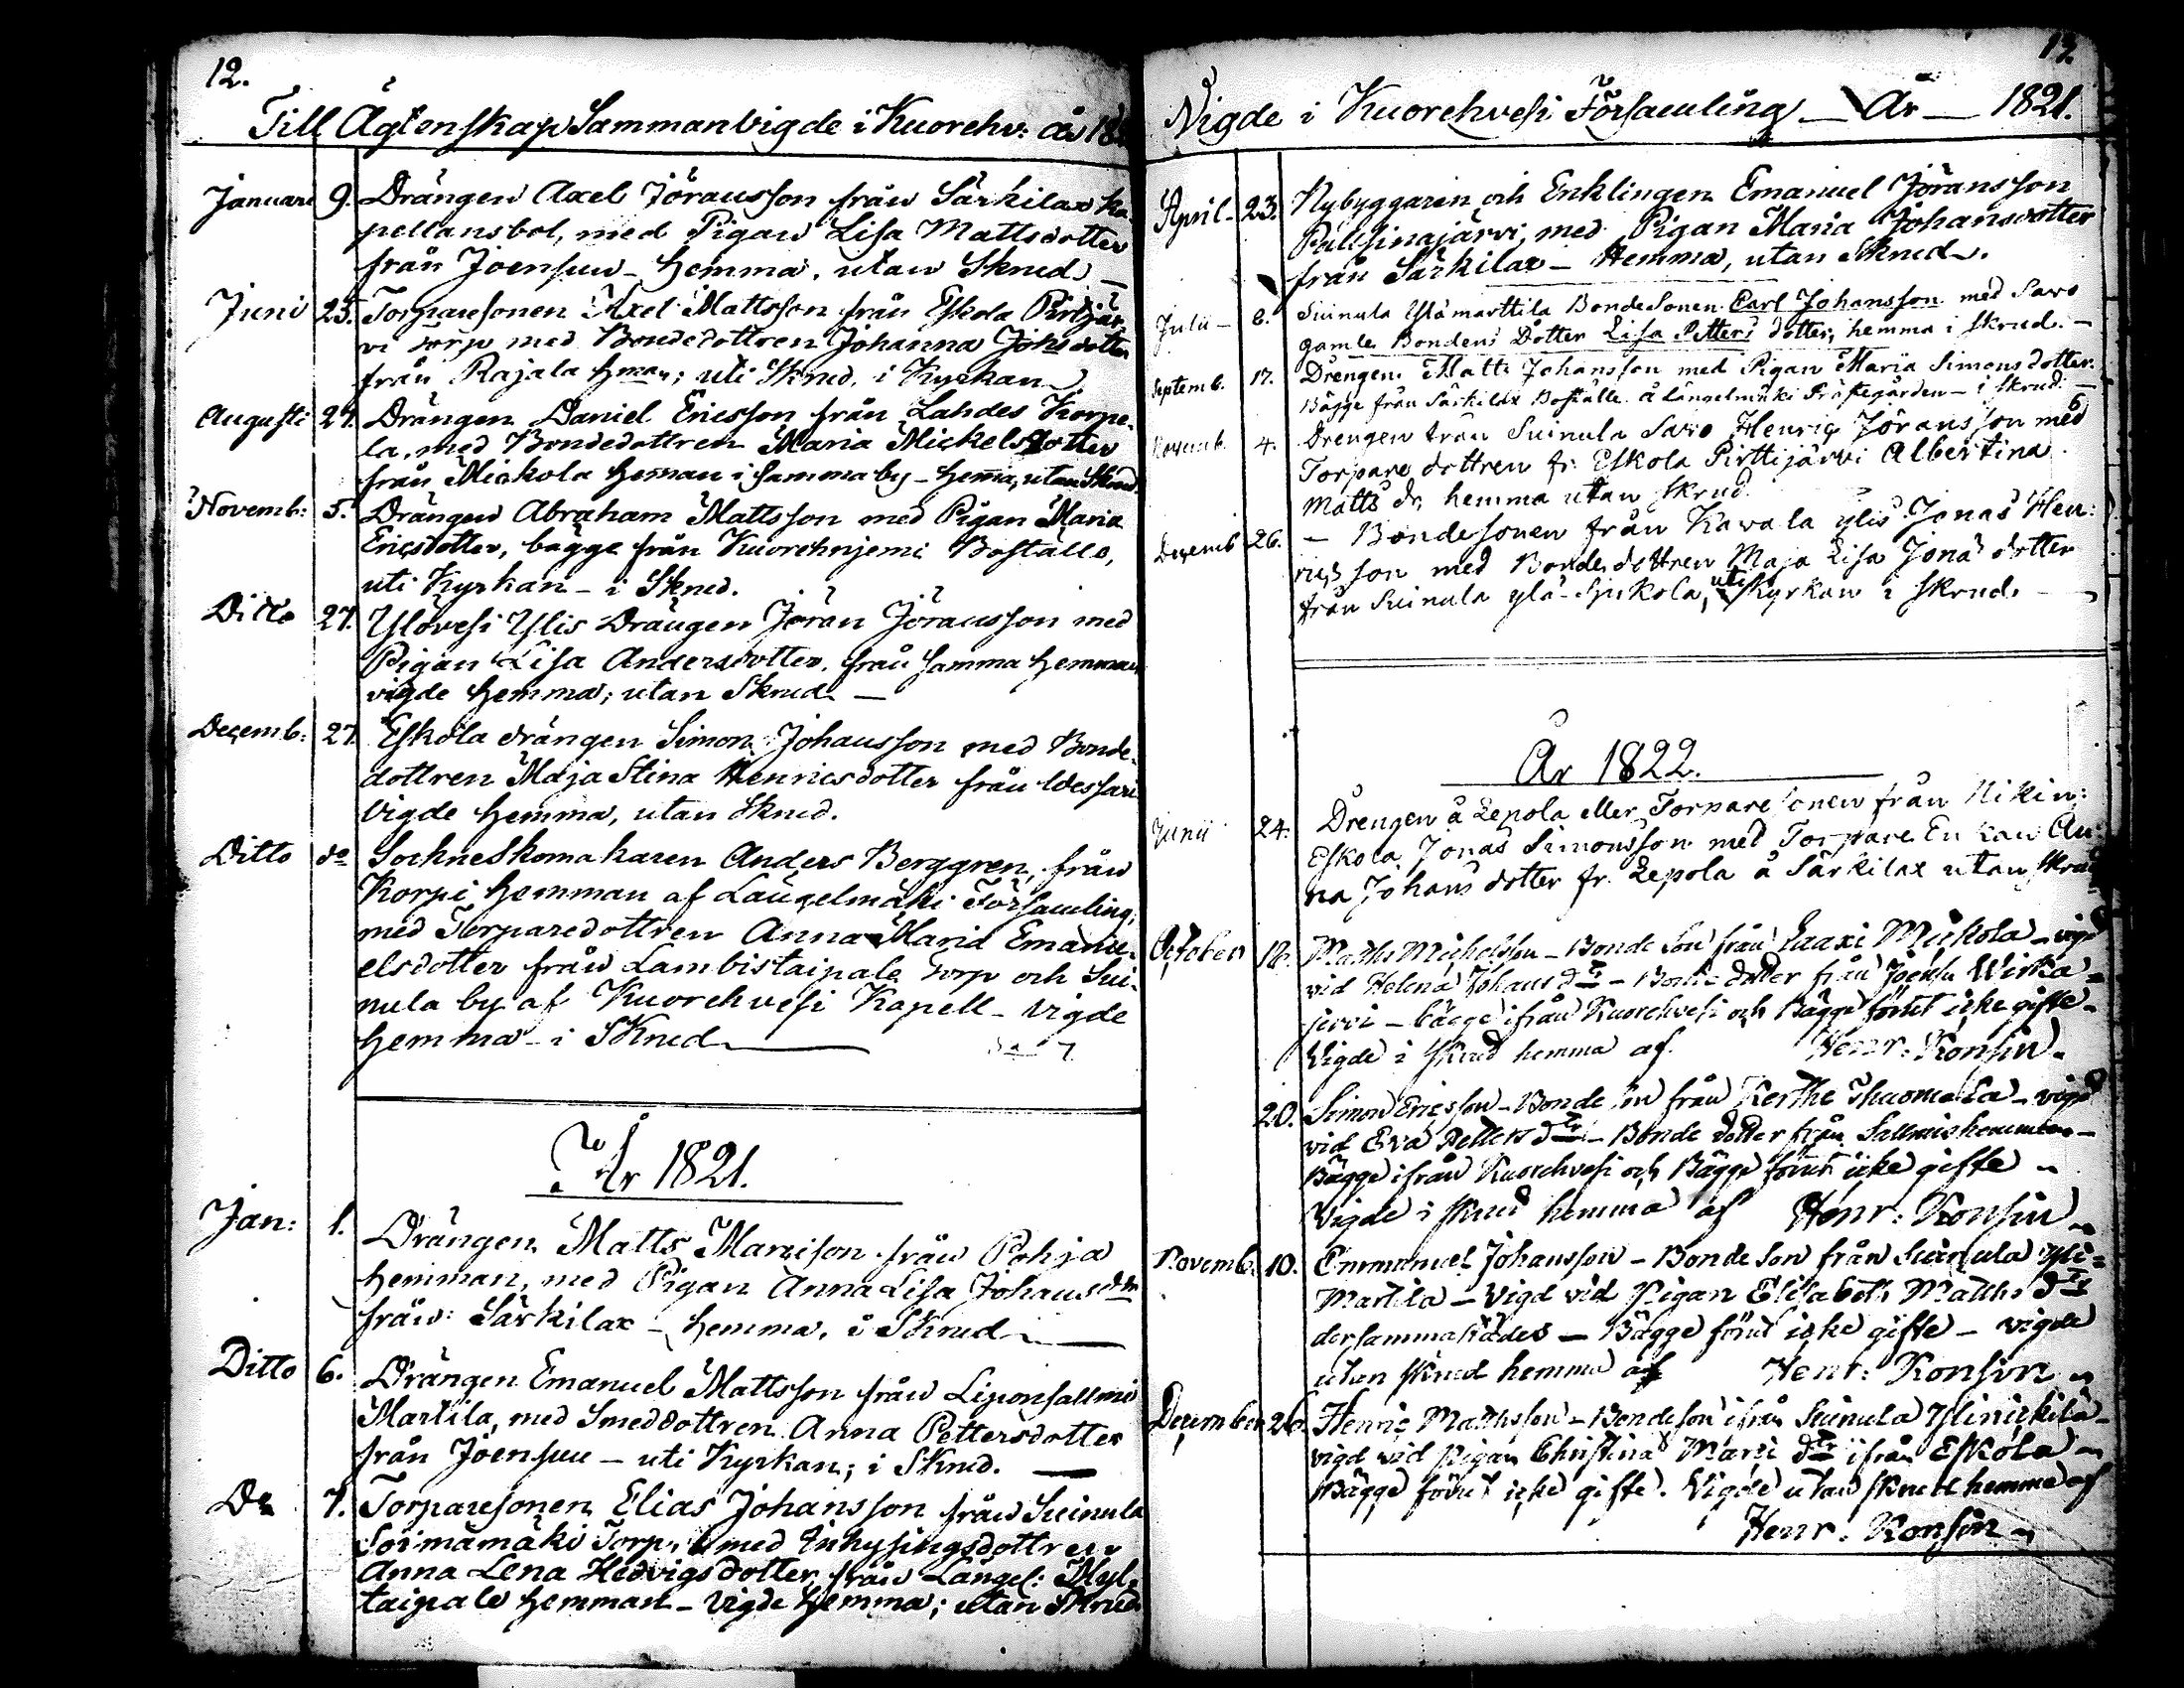 12.
Till Ägtenskap Sammanvigde i Kuorehv: år 18
Januari 9. Drängen Axel Jöransson från Särkilax ka-
pellansbol, med Pigan Lisa Mattsdotter
från Joensuu - hemma, utan Skrud -
Juni 25. Torparesonen Axel Mattsson från Eskola Pirtijär-
vi torp med Bondedottren Johanna Johsdotter
från Rajala hman; uti Skrud, i Kyrkan
Augusti 27. Drängen Daniel Ericsson från Lahdes Korpe-
la, med Bondedottren Maria Mickelsdotter
från Mickola heman i samma by - hema, utan Skrud.
Novemb: 5. Drängen Abraham Mattsson med Pigan Maria
Ericsdotter, bägge från Kuorehnjemi Boställe,
uti Kyrkan - i Skrud.
Ditto 27. Ylövesi Ylis Drängen Jöran Jöransson med
Pigan Lisa Andersdotter, från samma hemman
vigde hemma; utan Skrud -
Decemb: 27. Eskola drängen Simon Johansson med Bonde-
dottren Maja Stina Henricsdotter från Wessari
Vigde hemma, utan Skrud.
Ditto do Sockneskomakaren Anders Berggren, från
Korpi hemman af Längelmäki Församling,
med Torparedottren Anna Maria Emanu-
elsdotter från Lambistaipale Torp och Sui-
nula by af Kuorehvesi Kapell - vigde
hemma - i Skrud
År 1821.
Jan: 1. Drängen Matts Marcison från Pohja
hemman, med Pigan Anna Lisa Johansdtr
från Särkilax - hemma, i Skrud
Ditto 6. Drängen Emanuel Mattsson från Liponsallmi
Martila, med Smeddottren Anna Pettersdotter
från Joensuu - uti Kyrkan; i Skrud. -
Do 7. Torparesonen Elias Johansson från Suinula
Soimamäki Torp, med Inhysingsdottren
Anna Lena Hedvigsdotter från Längel: Myl-
taipale hemman - vigde hemma; utan Skrud
12.
Vigde i Kuorehvesi Församling - År - 1821.
April - 23. Nybyggaren och Enklingen Emanuel Jöransson
Pällsinajärvi, med Pigan Maria Johansdotter
från Särkilax - Hemma, utan Skrud.
Julii - 8. Suinula Ylämarttila Bonde Sonen Carl Johansson med Savo
gamle Bondens Dotter Lisa Petters dotter, hemma i skrud. -
Septemb. 17. Drengen Matts Johansson med Pigan Maria Simons dotter.
Bägge från Särkilax Boställe å Längelmäki Prästegården - i skrud -
Novemb. 4. Drengen från Suinula Savo Henric Jöransson med
Torpare dottren fr. Eskola Pirttijärvi Albertina
Matts dr, hemma utan skrud.
Decemb 26. - Bondesonen från Kavala ylis Jonas Hen:
ricsson med Bondedottren Maja Lisa Jonas dotter
från Suinula ylä-Sjukola, uti Kyrkan i skrud. -
År 1822.
Junii 24. Drengen å Lepola eller Torpare sonen från Nikin:
Eskola Jonas Simonsson med Torpare Enkan An:
na Johans dotter fr. Lepola å Särkilax utan skrud
October 18. Maths Michelsson - Bonde Son från Laaxi Mickola - vigd
vid Helena Johans dtr - Bonde dotter från Joensu Wirka=
jervi - bägge ifrån Kuorehvesi och Bägge förut icke gifte -
Vigde i skrud hemma af Henr: Konsin.
20. Simon Ericsson - Bonde Son från Kerthe Thuomala - vigd
vid Eva Petters dtr - Bonde dotter från Sallmis hemman -
Bägge ifrån Kuorehvesi och Bägge förut icke gifte -
Vigde i skrud hemma af Henr: Konsin
Novemb. 10. Emmanuel Johansson - Bonde Son från Suinula Yli=
Martila - Vigd vid Pigan Elisabeth Maths dtr
dersammastädes - Bägge förut icke gifte - vigde
utan skrud hemma af Henr: Konsin
December 26. Henric Mathsson - Bondeson ifrån Suinula Ylinickilä -
vigd vid Pigan Christina Marci dtr ifrån Eskola -
Bägge förut icke gifte. Vigde utan skrud hemma af
Henr: Konsin